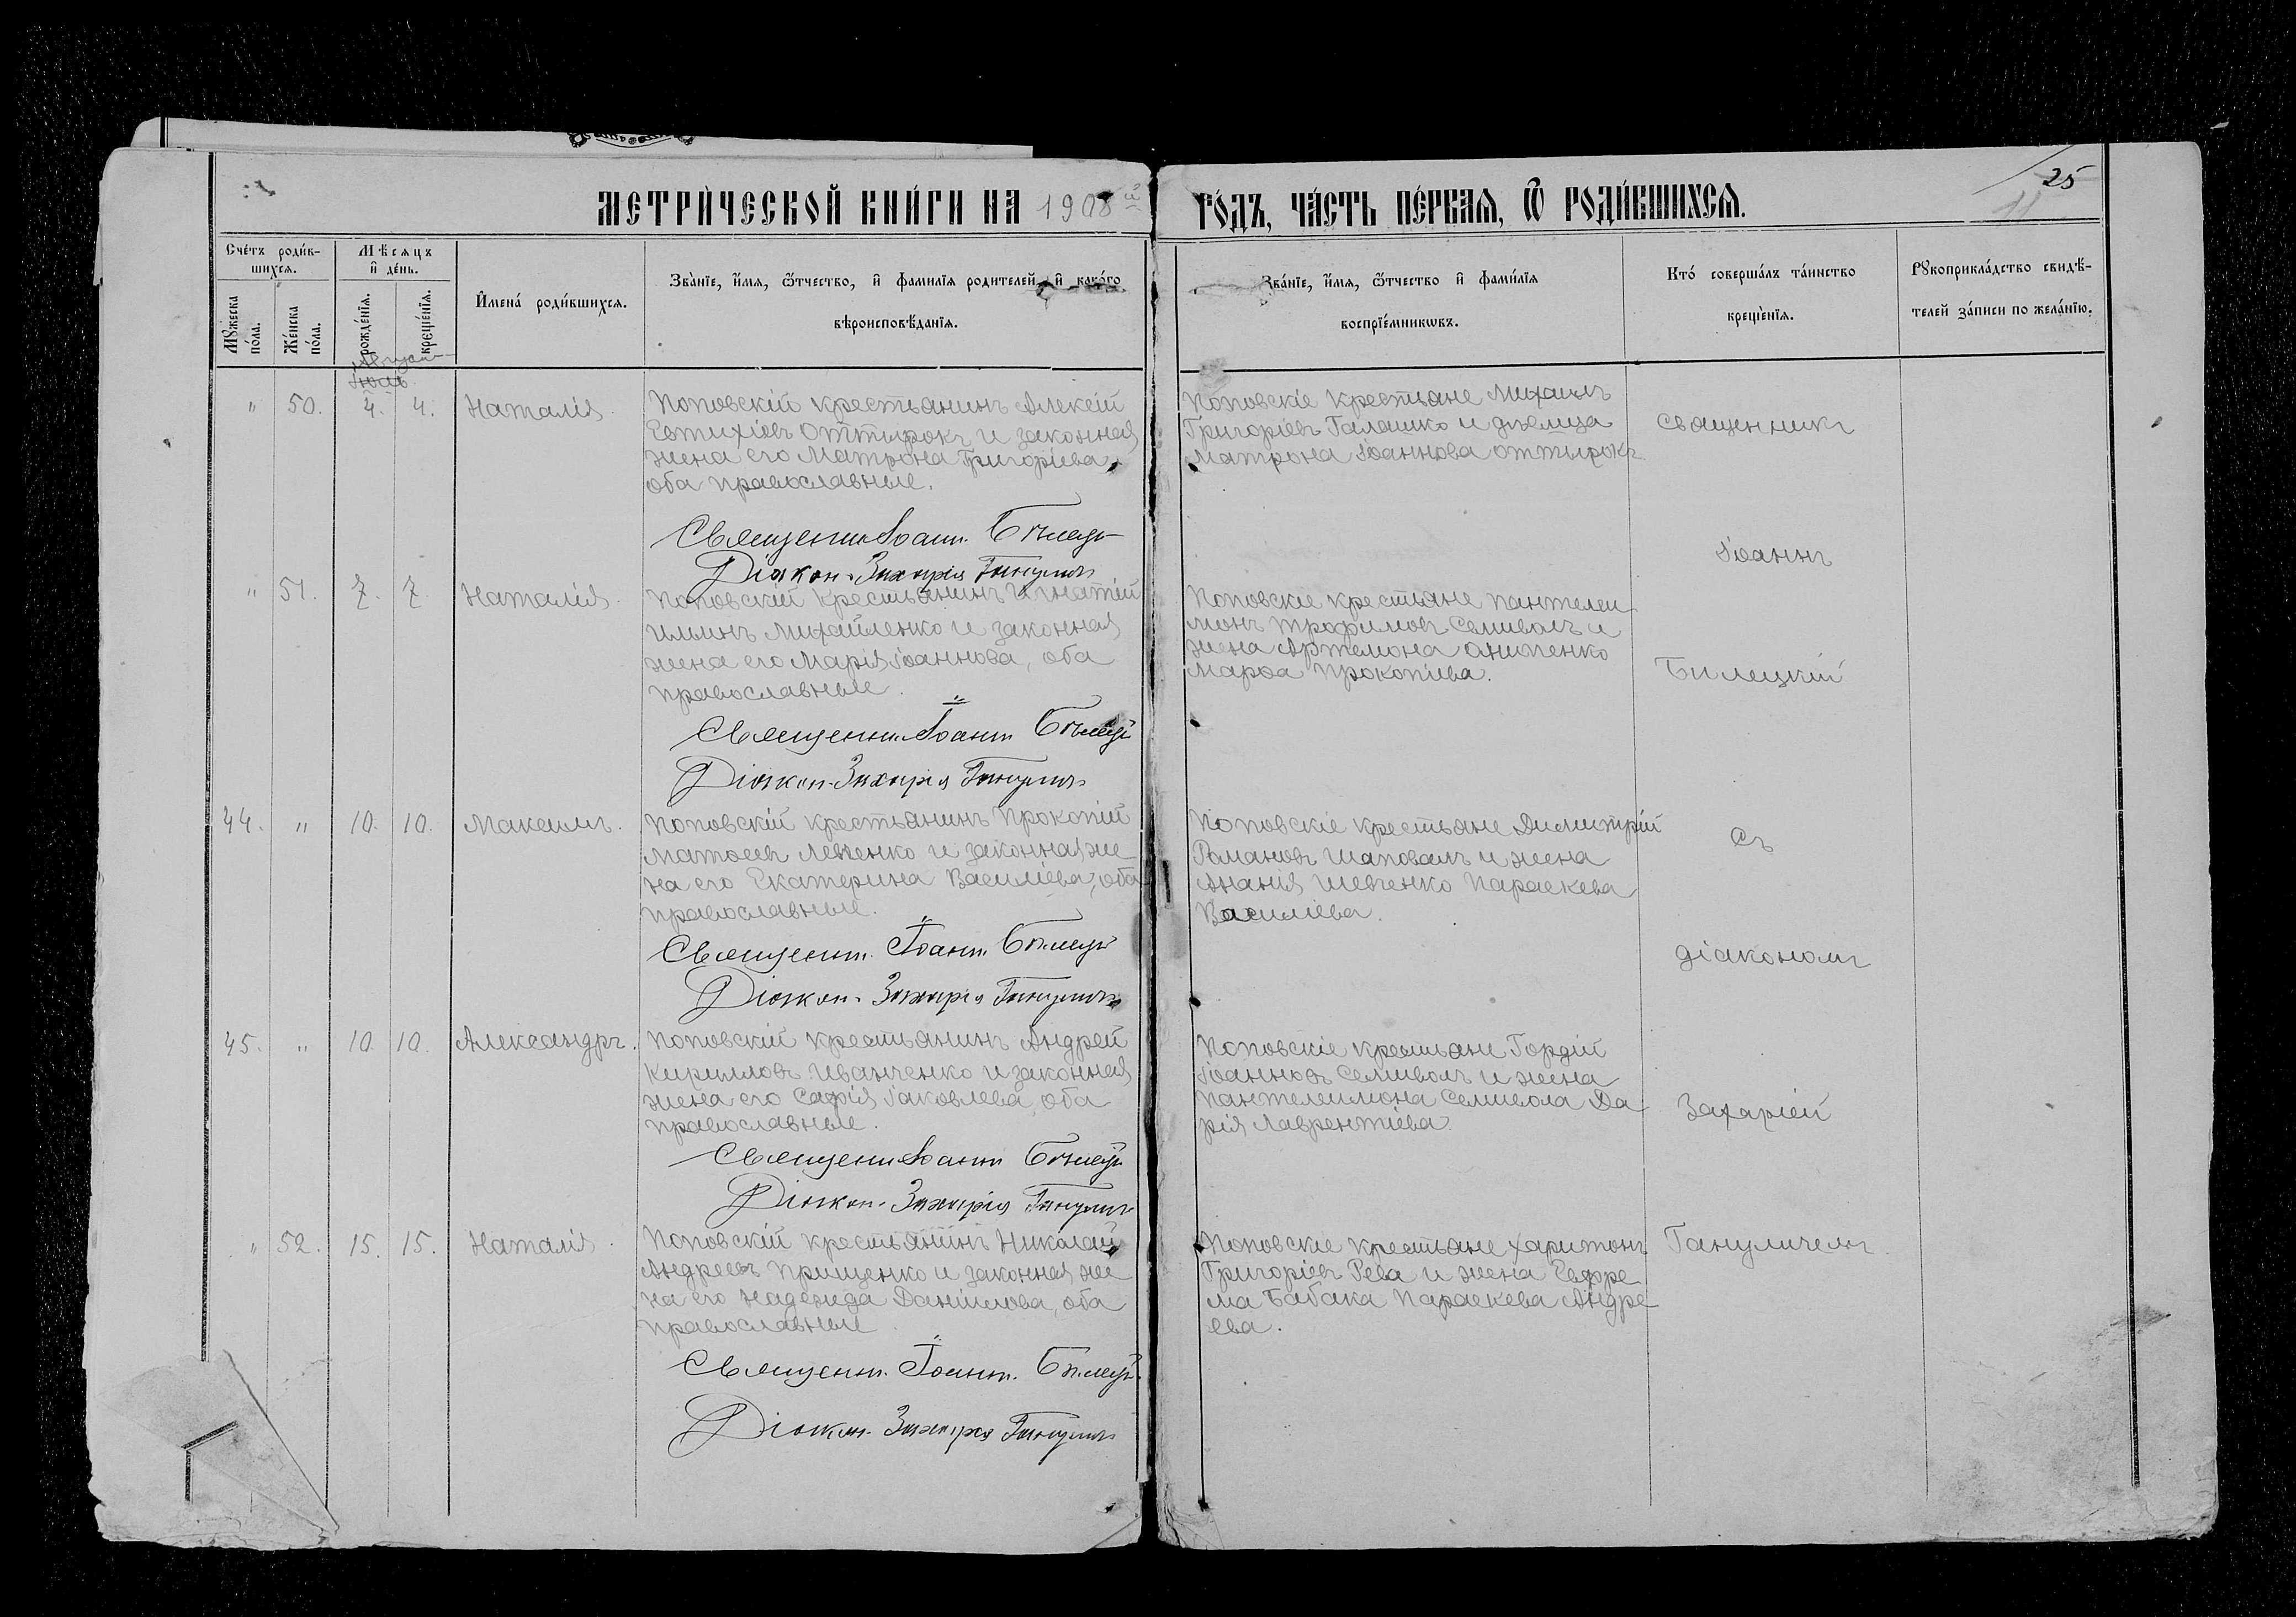 МЕТРИ́ЧЕСКОЙ КНИ́ГИ НА 1908 й
ГО́ДЪ, ЧА́СТЬ ПЕ́РВАЯ, Ѽ РОДИ́ВШИХСЯ.
25
11
Сче́тъ роди́в-
шихся.
Му́жеска
по́ла.
Же́нска
по́ла.
Мѣсяцъ
и де́нь.
рожде́нїя.
креще́нїя.
Имена́ роди́вшихся.
Зва́нїе, и́мя, ѻ́тчество, и фами́лїя родителей, и како́го
вѣроисповѣ́данїя.
Зва́нїе, и́мя, ѻ́тчество и фами́лїя
воспрїе́мникѡвъ.
Кто́ соверша́лъ та́инство
креще́нїя.
Рꙋкоприкла́дство свидѣ́-
телей за́писи по жела́нїю.
Августъ
Іюль
" 50. 4. 4. Наталія.
Поповскій крестьянинъ Алексій
Евтихіевъ Оттырокъ и законная
жена его Матрона Григоріева,
оба православные.
Діакон Захарія
Поповскіе крестьяне Михаилъ
Григоріевъ Галашко и дѣвица
Матрона Іоаннова Оттырокъ
священникъ
Іоаннъ
" 51. 7. 7. Наталія.
Поповскій крестьянинъ Игнатій
Илиинъ Михайленко и законная
жена его Марія Іоаннова, оба
православные.
Діакон Захарія
Поповскіе крестьяне Пантелеи
монъ Трофимовъ Семиволъ и
жена Артемона Онипенко
Марѳа Прокопіева.
Билецкій
44. " 10. 10. Максимъ.
Поповскій крестьянинъ Прокопій
Матѳеевъ Левченко и законная же
на его Екатерина Василіева, оба
православные.
Діакон Захарія
Поповскіе крестьяне Димитрій
Романовъ Шаповалъ и жена
Ананія Шевченко Параскева
Василіева.
съ
діакономъ
45. " 10. 10. Александръ.
Поповскій крестьянинъ Андрей
Кирилловъ Иванченко и законная
жена его Софія Іаковлева, оба
православные.
Діакон Захарія
Поповскіе крестьяне Гордій
Іоанновъ Семиволъ и жена
Пантелеимона Семивола Да
рія Лаврентіева.
Захаріей
" 52. 15. 15. Наталія.
Поповскій крестьянинъ Николай
Андреевъ Прищенко и законная же
на его Надежда Даніилова, оба
православные
Діакон Захарія
Поповскіе крестьяне Харитонъ
Григоріевъ Рева и жена Ефре
ма Бабака Параскева Андре
ева.
Гануличемъ